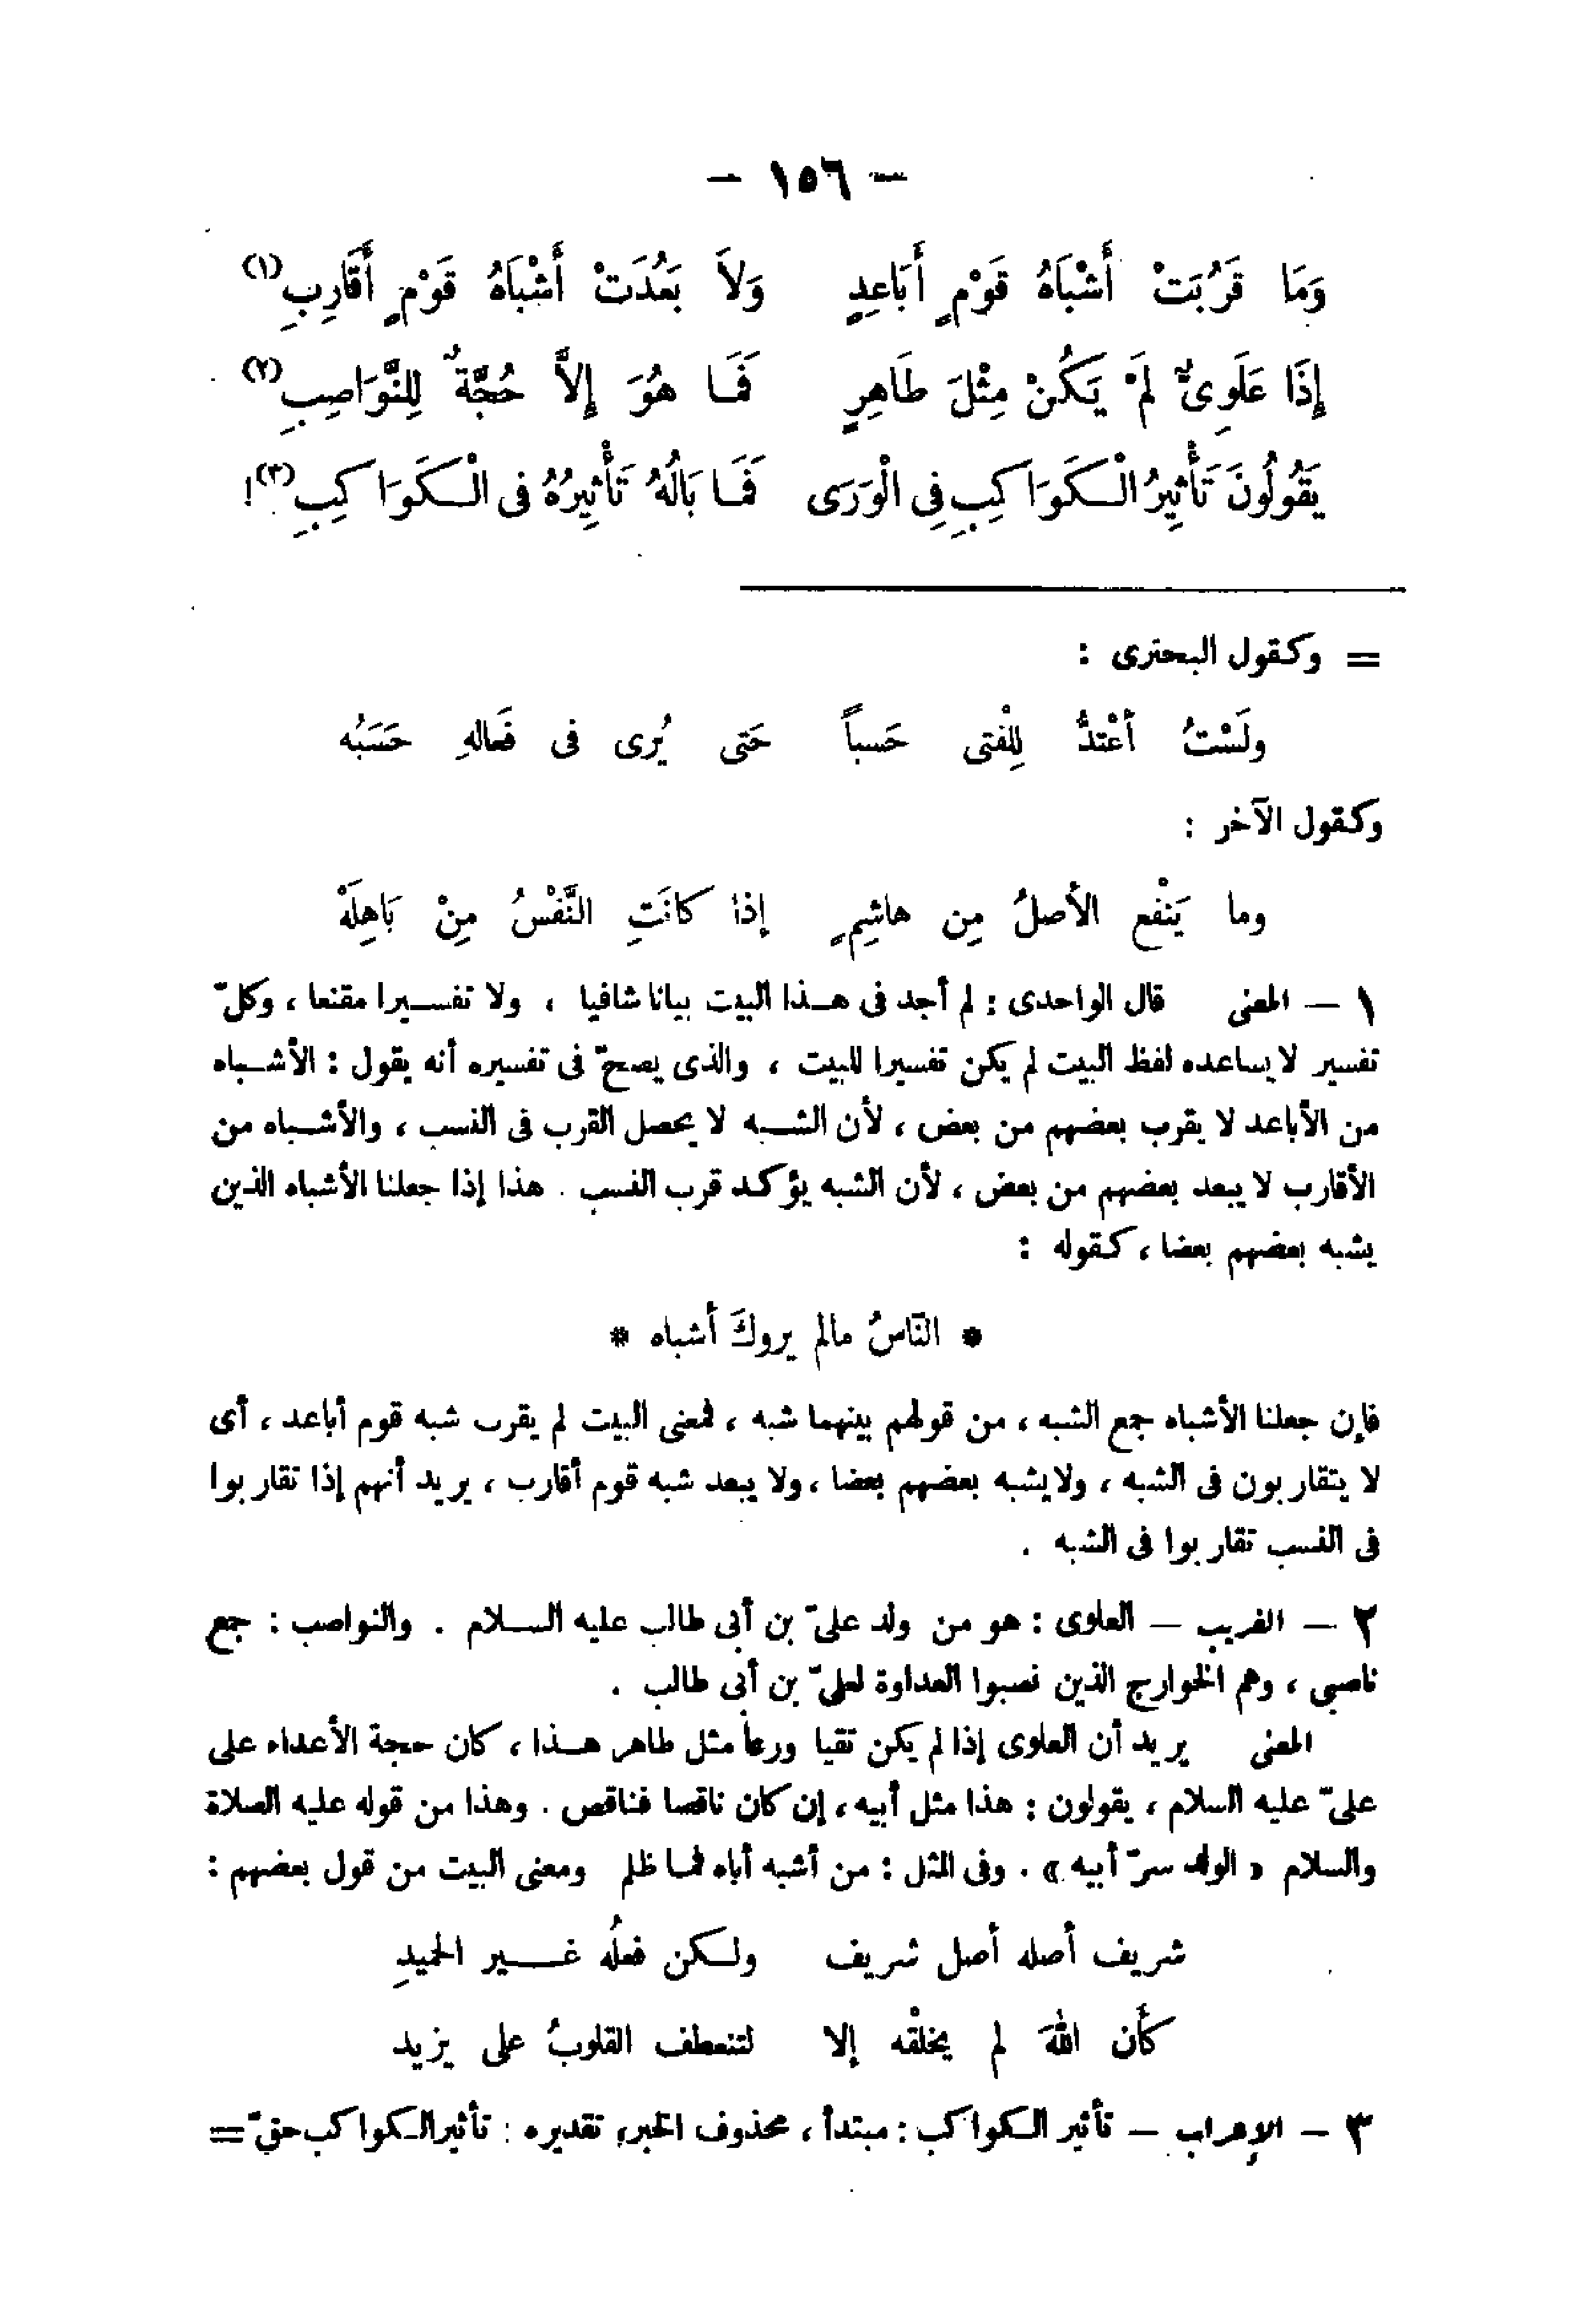 — ١٥٦ —
وَمَا قَرُبَتْ أَشْبَاهُ قَوْمٍ أَبَاعِدٍ وَلاَ بَعُدَتْ أَشْبَاهُ قَوْمٍ أَقَارِبِ (١)
إِذَا عَلَوِىٌّ لَمْ يَكُنْ مِثْلَ طَاهِرٍ فَمَا هُوَ إِلاَّ حُجَّةٌ لِلنَّوَاصِبِ (٢)
يَقُولُونَ تَأْثِيرُ الْكَوَاكِبِ فِى الْوَرَى فَمَا بَالُهُ تَأْثِيرُهُ فى الْكَوَاكِبِ (٣)!
= وكقول البحترى :
ولَسْتُ أعْتدُّ لِلْفتى حَسباً حَتى يُرى فى فَعالهِ حَسَبُه
وكقول الآخر :
وما يَنْفع الأصلُ مِن هاشِمٍ إذا كانَتِ النَّفْسُ مِنْ بَاهِلَهْ
١ — المعنى قال الواحدى : لم أجد فى هذا البيت بيانا شافيا ، ولا تفسيرا مقنعا ، وكلّ
تفسير لا يساعده لفظ البيت لم يكن تفسيرا للبيت ، والذى يصحّ فى تفسيره أنه يقول : الأشباه
من الأباعد لا يقرب بعضهم من بعض ، لأن الشبه لا يحصل القرب فى النسب ، والأشباه من
الأقارب لا يبعد بعضهم من بعض ، لأن الشبه يؤكد قرب النسب . هذا إذا جعلنا الأشباه الذين
يشبه بعضهم بعضا ، كقوله :
* النَاسُ مالم يروكَ أشباه *
فإن جعلنا الأشباه جمع الشبه ، من قولهم بينهما شبه ، فمعنى البيت لم يقرب شبه قوم أباعد ، أى
لا يتقاربون فى الشبه ، ولا يشبه بعضهم بعضا ، ولا يبعد شبه قوم أقارب ، يريد أنهم إذا تقاربوا
فى النسب تقاربوا فى الشبه .
٢ — الغريب — العلوى : هو من ولد علىّ بن أبى طالب عليه السلام . والنواصب : جمع
ناصبى ، وهم الخوارج الذين نصبوا العداوة لعلىّ بن أبى طالب .
المعنى يريد أن العلوى إذا لم يكن تقيا ورعا مثل طاهر هذا ، كان حجة الأعداء على
علىّ عليه السلام ، يقولون : هذا مثل أبيه ، إن كان ناقصا فناقص . وهذا من قوله عليه الصلاة
والسلام « الولد سرّ أبيه » . وفى المثل : من أشبه أباه فما ظلم ومعنى البيت من قول بعضهم :
شريف أصله أصل شريف ولكن فعلُه غير الحميدِ
كأن اللهَ لم يخلقْه إلا لتنعطف القلوبُ على يزيد
٣ — الإعراب — تأثير الكواكب : مبتدأ ، محذوف الخبر، تقديره : تأثير الكواكب حقّ =